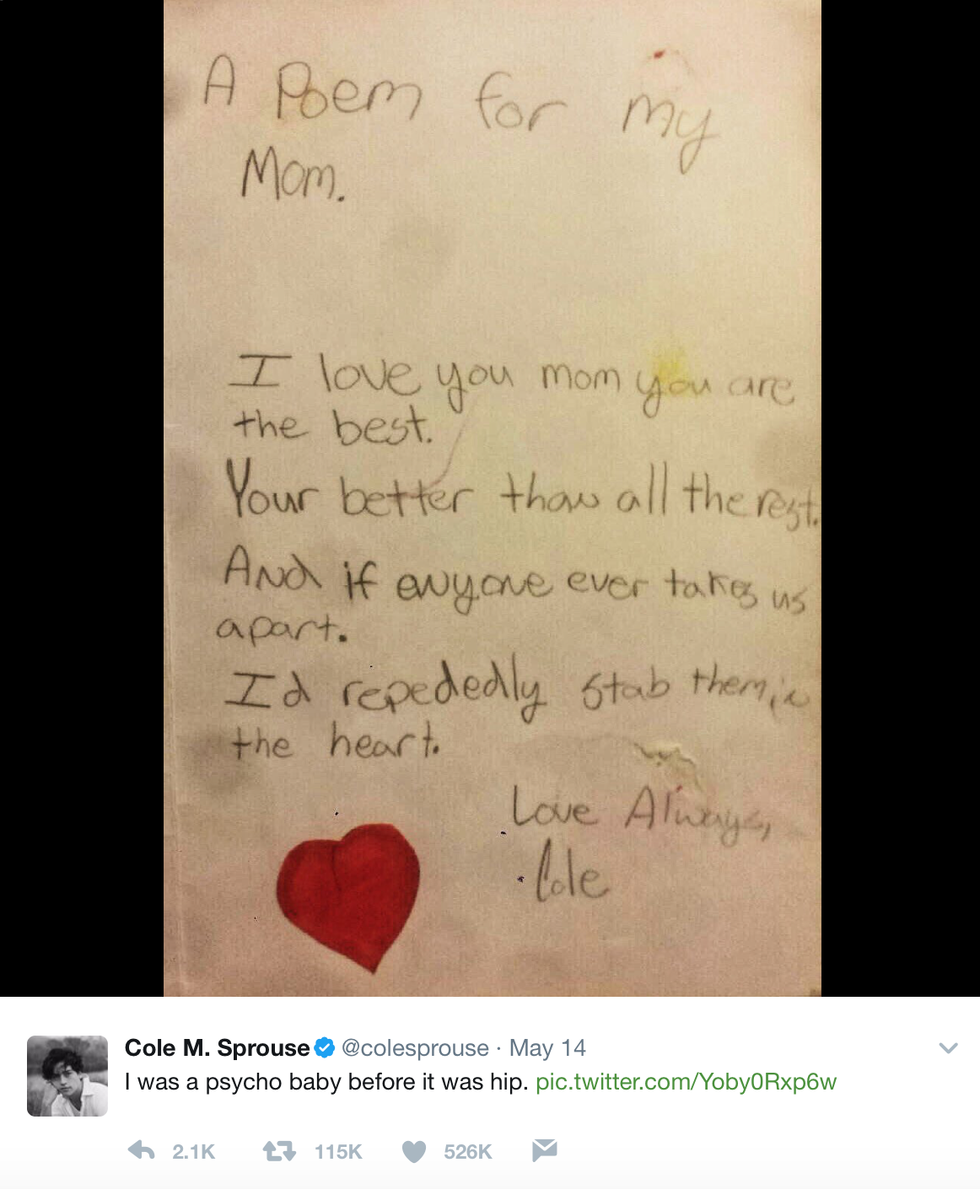 A Poem for my
Mom.
I love you mom you are
the best.
Your better than all the rest.
And if enyone ever takes us
apart.
Id repededly stab them in
the heart.
Love Always,
Cole
Cole M. Sprouse @colesprouse · May 14
I was a psycho baby before it was hip. pic.twitter.com/Yoby0Rxp6w
2.1K 115K 526K